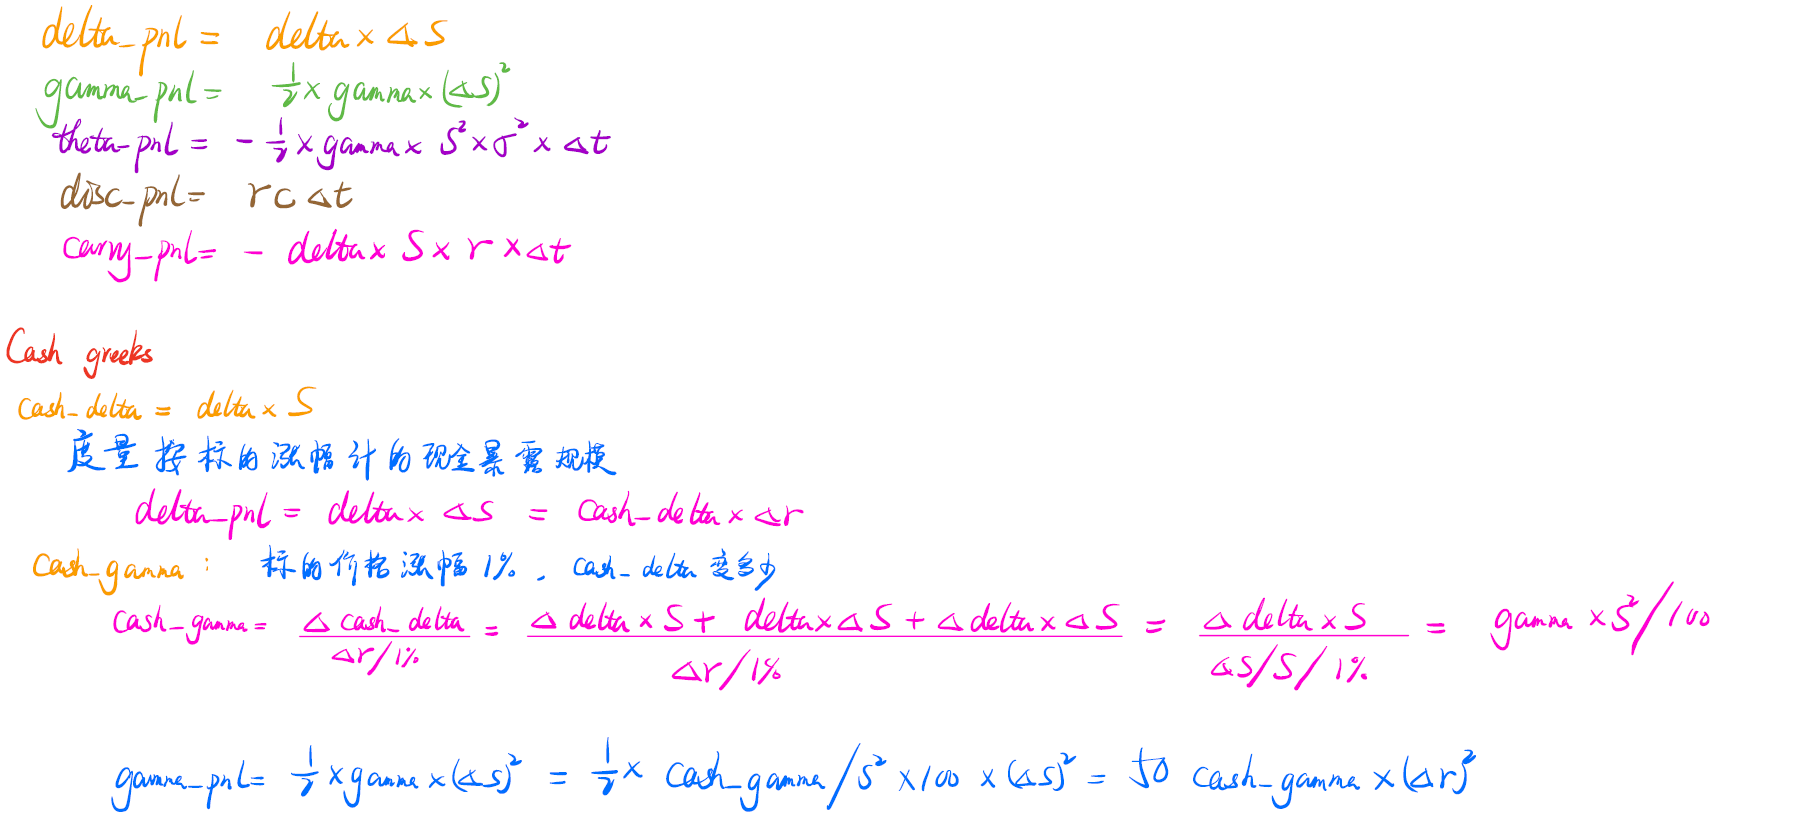 delta_pnl = delta × ΔS
gamma_pnl = 1/2 × gamma × (ΔS)²
theta_pnl = - 1/2 × gamma × S² × σ² × Δt
disc_pnl = r c Δt
carry_pnl = - delta × S × r × Δt
Cash greeks
cash_delta = delta × S
度量按标的涨幅计的现金暴露规模
delta_pnl = delta × ΔS = cash_delta × Δr
cash_gamma : 标的价格涨幅1%, cash_delta变多少
cash_gamma = Δ cash_delta / (Δr/1%) = (Δ delta × S + delta × ΔS + Δ delta × ΔS) / (Δr/1%) = (Δ delta × S) / (ΔS/S/1%) = gamma × S²/100
gamma_pnl = 1/2 × gamma × (ΔS)² = 1/2 × cash_gamma/S² × 100 × (ΔS)² = 50 cash_gamma × (Δr)²